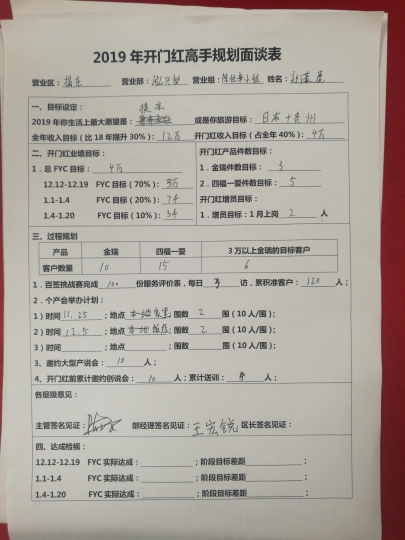 2019 年开门红高手规划面谈表
营业区： 营业部： 营业组： 姓名：
一、目标设定： 换车
2019 年你生活上最大愿望是： 或是你旅游目标： 日本+贵州
全年收入目标（比 18 年提升 30%）： 12万 开门红收入目标（占全年 40%）： 4万
二、开门红业绩目标： 开门红产品件数目标：
1．总 FYC 目标： 4万 1．金瑞件数目标： 3
12.12-12.19 FYC 目标（70%）： 3万 2．四福一爱件数目标： 5
1.1-1.4 FYC 目标（20%）： 开门红增员目标：
1.4-1.20 FYC 目标（10%）： 1．增员目标：1 月上岗 2 人
三、过程规划
产品 金瑞 四福一爱 3 万以上金瑞的目标客户
客户数量 10 15 6
1．百签挑战赛完成 100 份服务评价表，每日 3 访，累积准客户： 120 人；
2．个产会举办计划：
1）时间 11.25 ；地点 ；围数 2 围（10 人/围）；
2）时间 12.5 ；地点 本地饭店 ；围数 2 围（10 人/围）；
3）时间 ；地点 ；围数 围（10 人/围）；
3、邀约大型产说会： 10 人；
4、开门红前累计邀约创说会： 10 人；累计送训： 人；
各层级意见：
主管签名见证： 部经理签名见证： 王宏锐 区长签名见证：
四、达成检视：
12.12-12.19 FYC 实际达成： ；阶段目标差距 ；
1.1-1.4 FYC 实际达成： ；阶段目标差距 ；
1.4-1.20 FYC 实际达成： ；阶段目标差距 ；